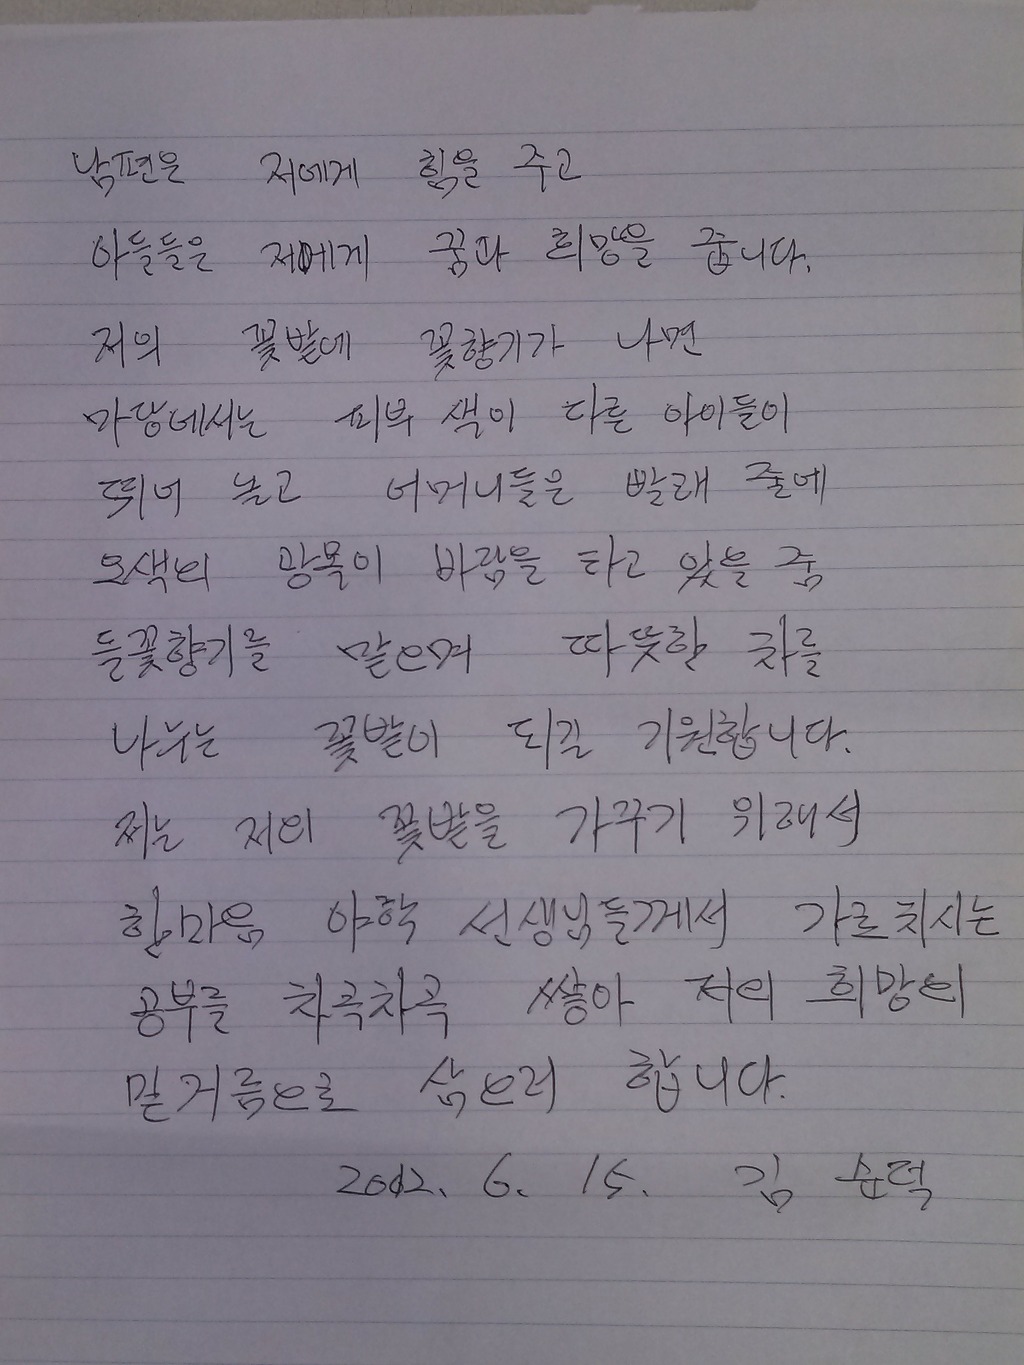 남편은 저에게 힘을 주고
아들들은 저에게 꿈과 희망을 줍니다.
저의 꽃밭에 꽃향기가 나면
마당에서는 피부 색이 다른 아이들이
뛰너 놀고 어머니들은 빨래 줄에
오색의 광목이 바람을 타고 있을 줌
들꽃향기를 맡으며 따뜻한 차를
나누는 꽃밭이 되길 기원합니다.
저는 저의 꽃밭을 가꾸기 위해서
한마음 야학 선생님들께서 가르치시는
공부를 차곡차곡 쌓아 저의 희망의
밑거름으로 삼으려 합니다.
2012. 6. 15. 김 순덕